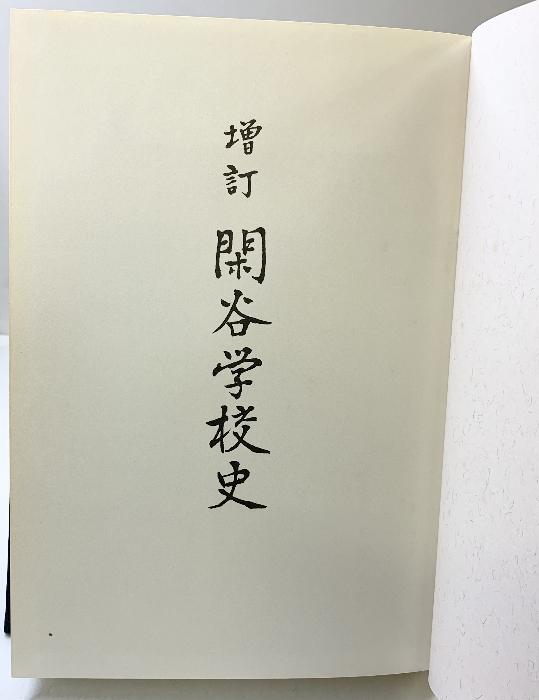 増訂 閑谷学校史